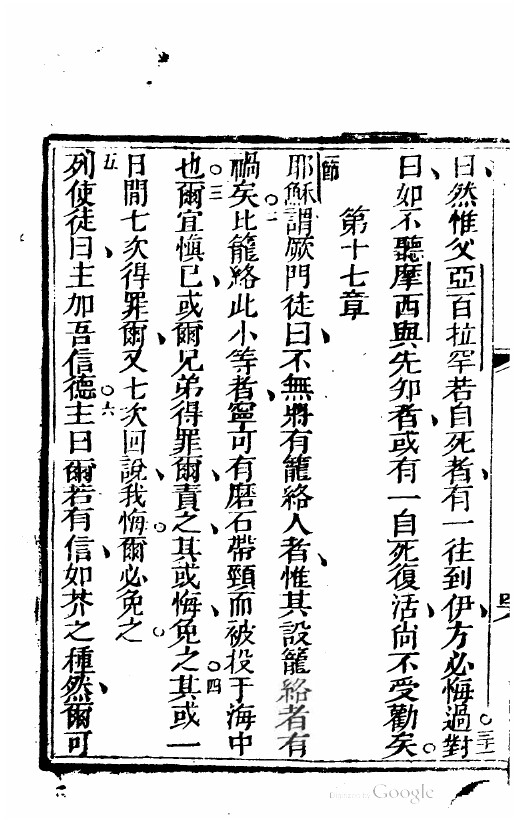 曰然惟父亞百拉罕若自死者有一往到伊方必悔過對○三十一
曰如不聽摩西與先知者或有一自死復活尚不受勸矣○
第十七章
節耶穌謂厥門徒曰不無將有籠絡人者惟其設籠絡者有
禍矣○二比籠絡此小等者寧可有磨石帶頸而被投于海中
也○三爾宜慎已或爾兄弟得罪爾責之其或悔免之○四其或一
日間七次得罪爾又七次回說我悔爾必免之○
五列使徒曰主加吾信德○六主曰爾若有信如芥之種然爾可
Digitized by Google